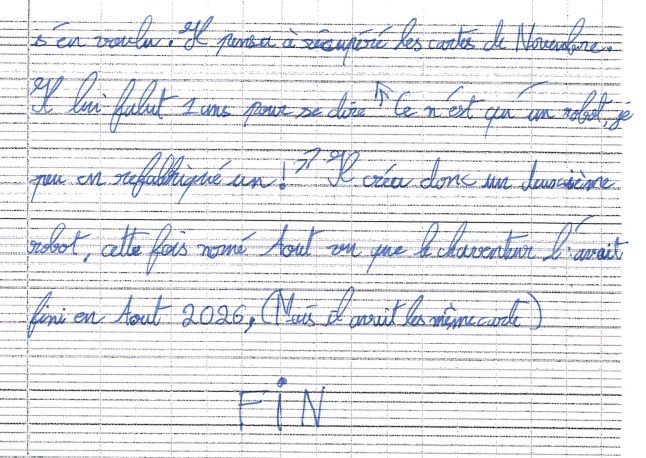 s'en voulu. Il pensa à récupéré les cartes de Novembre.
Il lui falut 1 ans pour se dire "Ce n'est qu'un robot, je
peu en refabriqué un !" Il créa donc un deuxième
robot, cette fois nomé Aout vu que le l'avait
fini en Aout 2026, (Mais il avait les même carte)
FiN